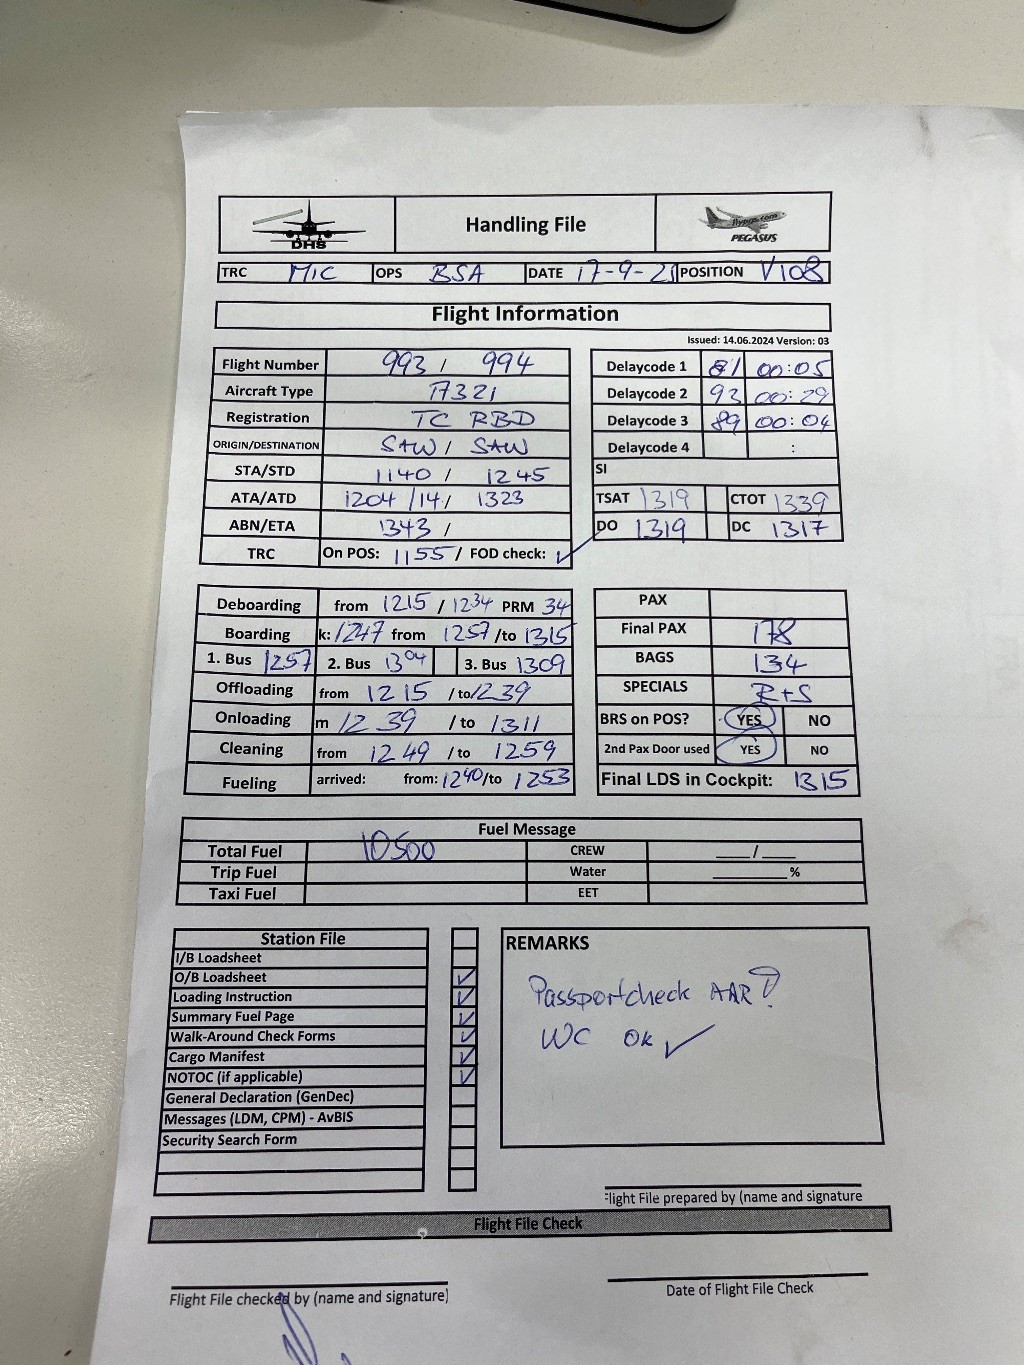 DHS
Handling File
flypgs.com
PEGASUS
TRC MIC OPS BSA DATE 17-9-25 POSITION V108
Flight Information
Issued: 14.06.2024 Version: 03
Flight Number 993 / 994
Aircraft Type A321
Registration TC RBD
ORIGIN/DESTINATION SAW / SAW
STA/STD 1140 / 1245
ATA/ATD 1204 /14 / 1323
ABN/ETA 1343 /
TRC On POS: 1155 / FOD check: ✓
Delaycode 1 81 00:05
Delaycode 2 93 00:29
Delaycode 3 89 00:04
Delaycode 4 :
SI
TSAT 1319 CTOT 1339
DO 1319 DC 1317
Deboarding from 1215 / 1234 PRM 34
Boarding k: 1247 from 1257 /to 1315
1. Bus 1257 2. Bus 1304 3. Bus 1309
Offloading from 1215 / to 1239
Onloading m 1239 / to 1311
Cleaning from 1249 / to 1259
Fueling arrived: from: 1240 /to 1253
PAX
Final PAX 178
BAGS 134
SPECIALS R+S
BRS on POS? YES NO
2nd Pax Door used YES NO
Final LDS in Cockpit: 1315
Fuel Message
Total Fuel 10500 CREW ___/___
Trip Fuel Water ______%
Taxi Fuel EET
Station File
I/B Loadsheet
O/B Loadsheet ✓
Loading Instruction ✓
Summary Fuel Page ✓
Walk-Around Check Forms ✓
Cargo Manifest ✓
NOTOC (if applicable) ✓
General Declaration (GenDec)
Messages (LDM, CPM) - AvBIS
Security Search Form
REMARKS
Passportcheck AAR?
WC OK ✓
Flight File prepared by (name and signature
Flight File Check
Flight File checked by (name and signature)
Date of Flight File Check